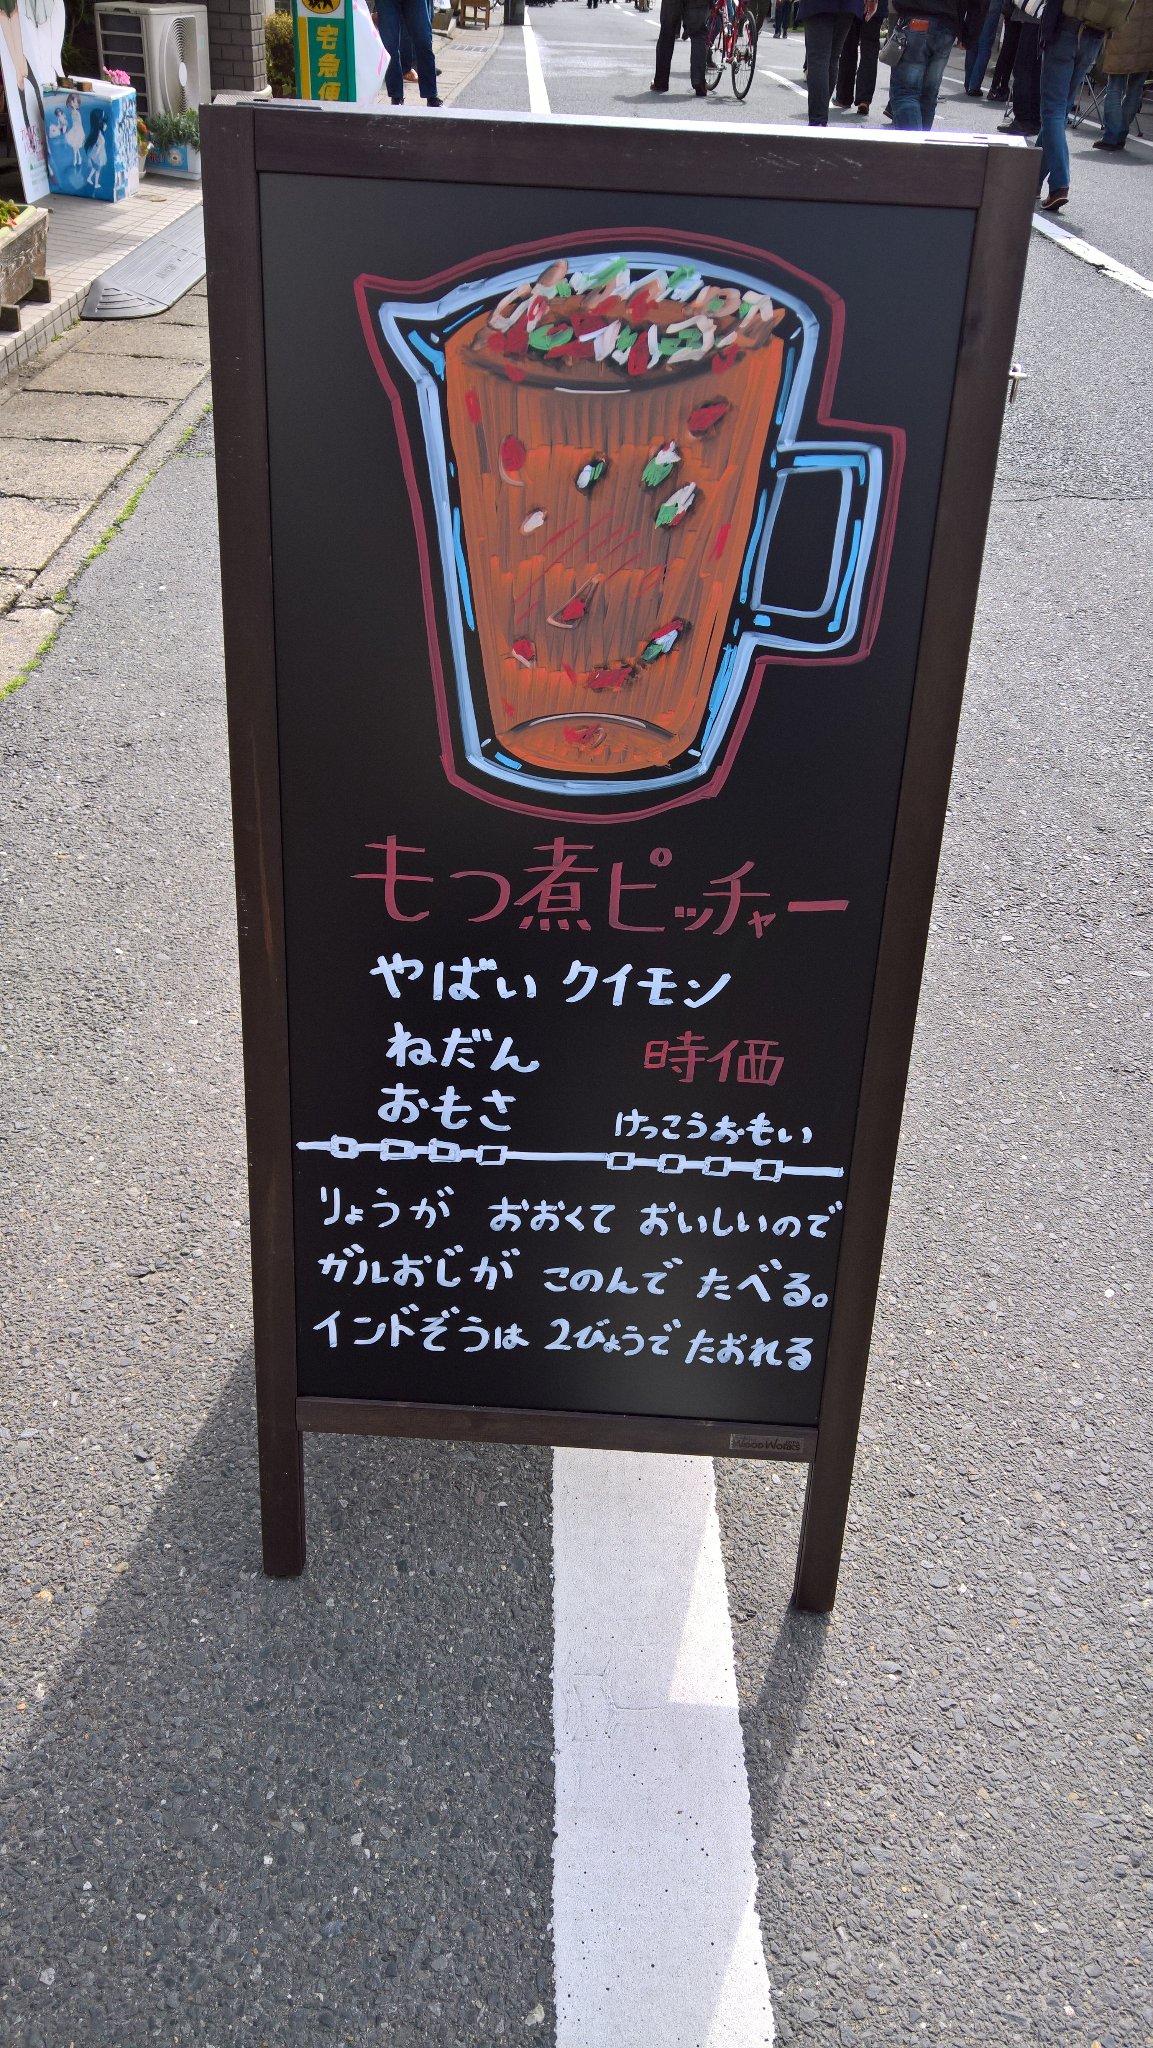 宅急便
もつ煮ピッチャー
やばい クイモン
ねだん 時価
おもさ けっこうおもい
りょうが おおくて おいしいので
ガルおじが このんで たべる。
インドぞうは 2びょうで たおれる
WOODWORKS